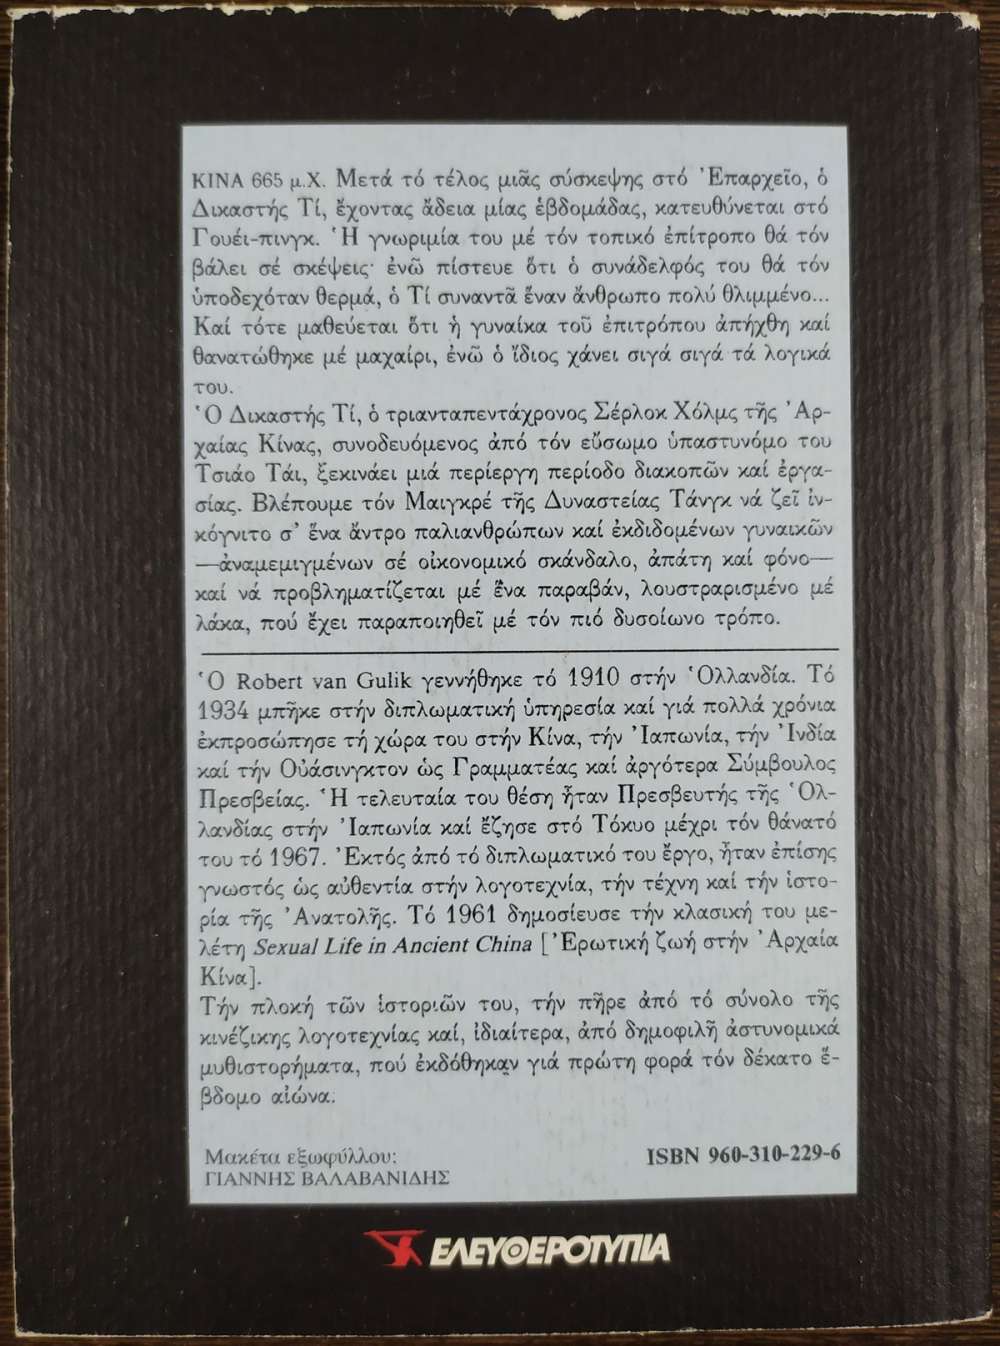 ΚΙΝΑ 665 μ.Χ. Μετά τό τέλος μιᾶς σύσκεψης στό Ἐπαρχεῖο, ὁ
Δικαστής Τί, ἔχοντας ἄδεια μίας ἑβδομάδας, κατευθύνεται στό
Γουέι-πινγκ. Ἡ γνωριμία του μέ τόν τοπικό ἐπίτροπο θά τόν
βάλει σέ σκέψεις· ἐνῶ πίστευε ὅτι ὁ συνάδελφός του θά τόν
ὑποδεχόταν θερμά, ὁ Τί συναντᾶ ἕναν ἄνθρωπο πολύ θλιμμένο...
Καί τότε μαθεύεται ὅτι ἡ γυναίκα τοῦ ἐπιτρόπου ἀπήχθη καί
θανατώθηκε μέ μαχαίρι, ἐνῶ ὁ ἴδιος χάνει σιγά σιγά τά λογικά
του.
Ὁ Δικαστής Τί, ὁ τριανταπεντάχρονος Σέρλοκ Χόλμς τῆς Ἀρ-
χαίας Κίνας, συνοδευόμενος ἀπό τόν εὔσωμο ὑπαστυνόμο του
Τσιάο Τάι, ξεκινάει μιά περίεργη περίοδο διακοπῶν καί ἐργα-
σίας. Βλέπουμε τόν Μαιγκρέ τῆς Δυναστείας Τάνγκ νά ζεῖ ἰν-
κόγνιτο σ' ἕνα ἄντρο παλιανθρώπων καί ἐκδιδομένων γυναικῶν
—ἀναμεμιγμένων σέ οἰκονομικό σκάνδαλο, ἀπάτη καί φόνο—
καί νά προβληματίζεται μέ ἕνα παραβάν, λουστραρισμένο μέ
λάκα, πού ἔχει παραποιηθεῖ μέ τόν πιό δυσοίωνο τρόπο.
Ὁ Robert van Gulik γεννήθηκε τό 1910 στήν Ὁλλανδία. Τό
1934 μπῆκε στήν διπλωματική ὑπηρεσία καί γιά πολλά χρόνια
ἐκπροσώπησε τή χώρα του στήν Κίνα, τήν Ἰαπωνία, τήν Ἰνδία
καί τήν Οὐάσινγκτον ὡς Γραμματέας καί ἀργότερα Σύμβουλος
Πρεσβείας. Ἡ τελευταία του θέση ἦταν Πρεσβευτής τῆς Ὁλ-
λανδίας στήν Ἰαπωνία καί ἔζησε στό Τόκυο μέχρι τόν θάνατό
του τό 1967. Ἐκτός ἀπό τό διπλωματικό του ἔργο, ἦταν ἐπίσης
γνωστός ὡς αὐθεντία στήν λογοτεχνία, τήν τέχνη καί τήν ἱστο-
ρία τῆς Ἀνατολῆς. Τό 1961 δημοσίευσε τήν κλασική του με-
λέτη Sexual Life in Ancient China [Ἐρωτική ζωή στήν Ἀρχαία
Κίνα].
Τήν πλοκή τῶν ἱστοριῶν του, τήν πῆρε ἀπό τό σύνολο τῆς
κινέζικης λογοτεχνίας καί, ἰδιαίτερα, ἀπό δημοφιλῆ ἀστυνομικά
μυθιστορήματα, πού ἐκδόθηκαν γιά πρώτη φορά τόν δέκατο ἕ-
βδομο αἰώνα.
Μακέτα εξωφύλλου:
ΓΙΑΝΝΗΣ ΒΑΛΑΒΑΝΙΔΗΣ
ISBN 960-310-229-6
ΕΛΕΥΘΕΡΟΤΥΠΙΑ